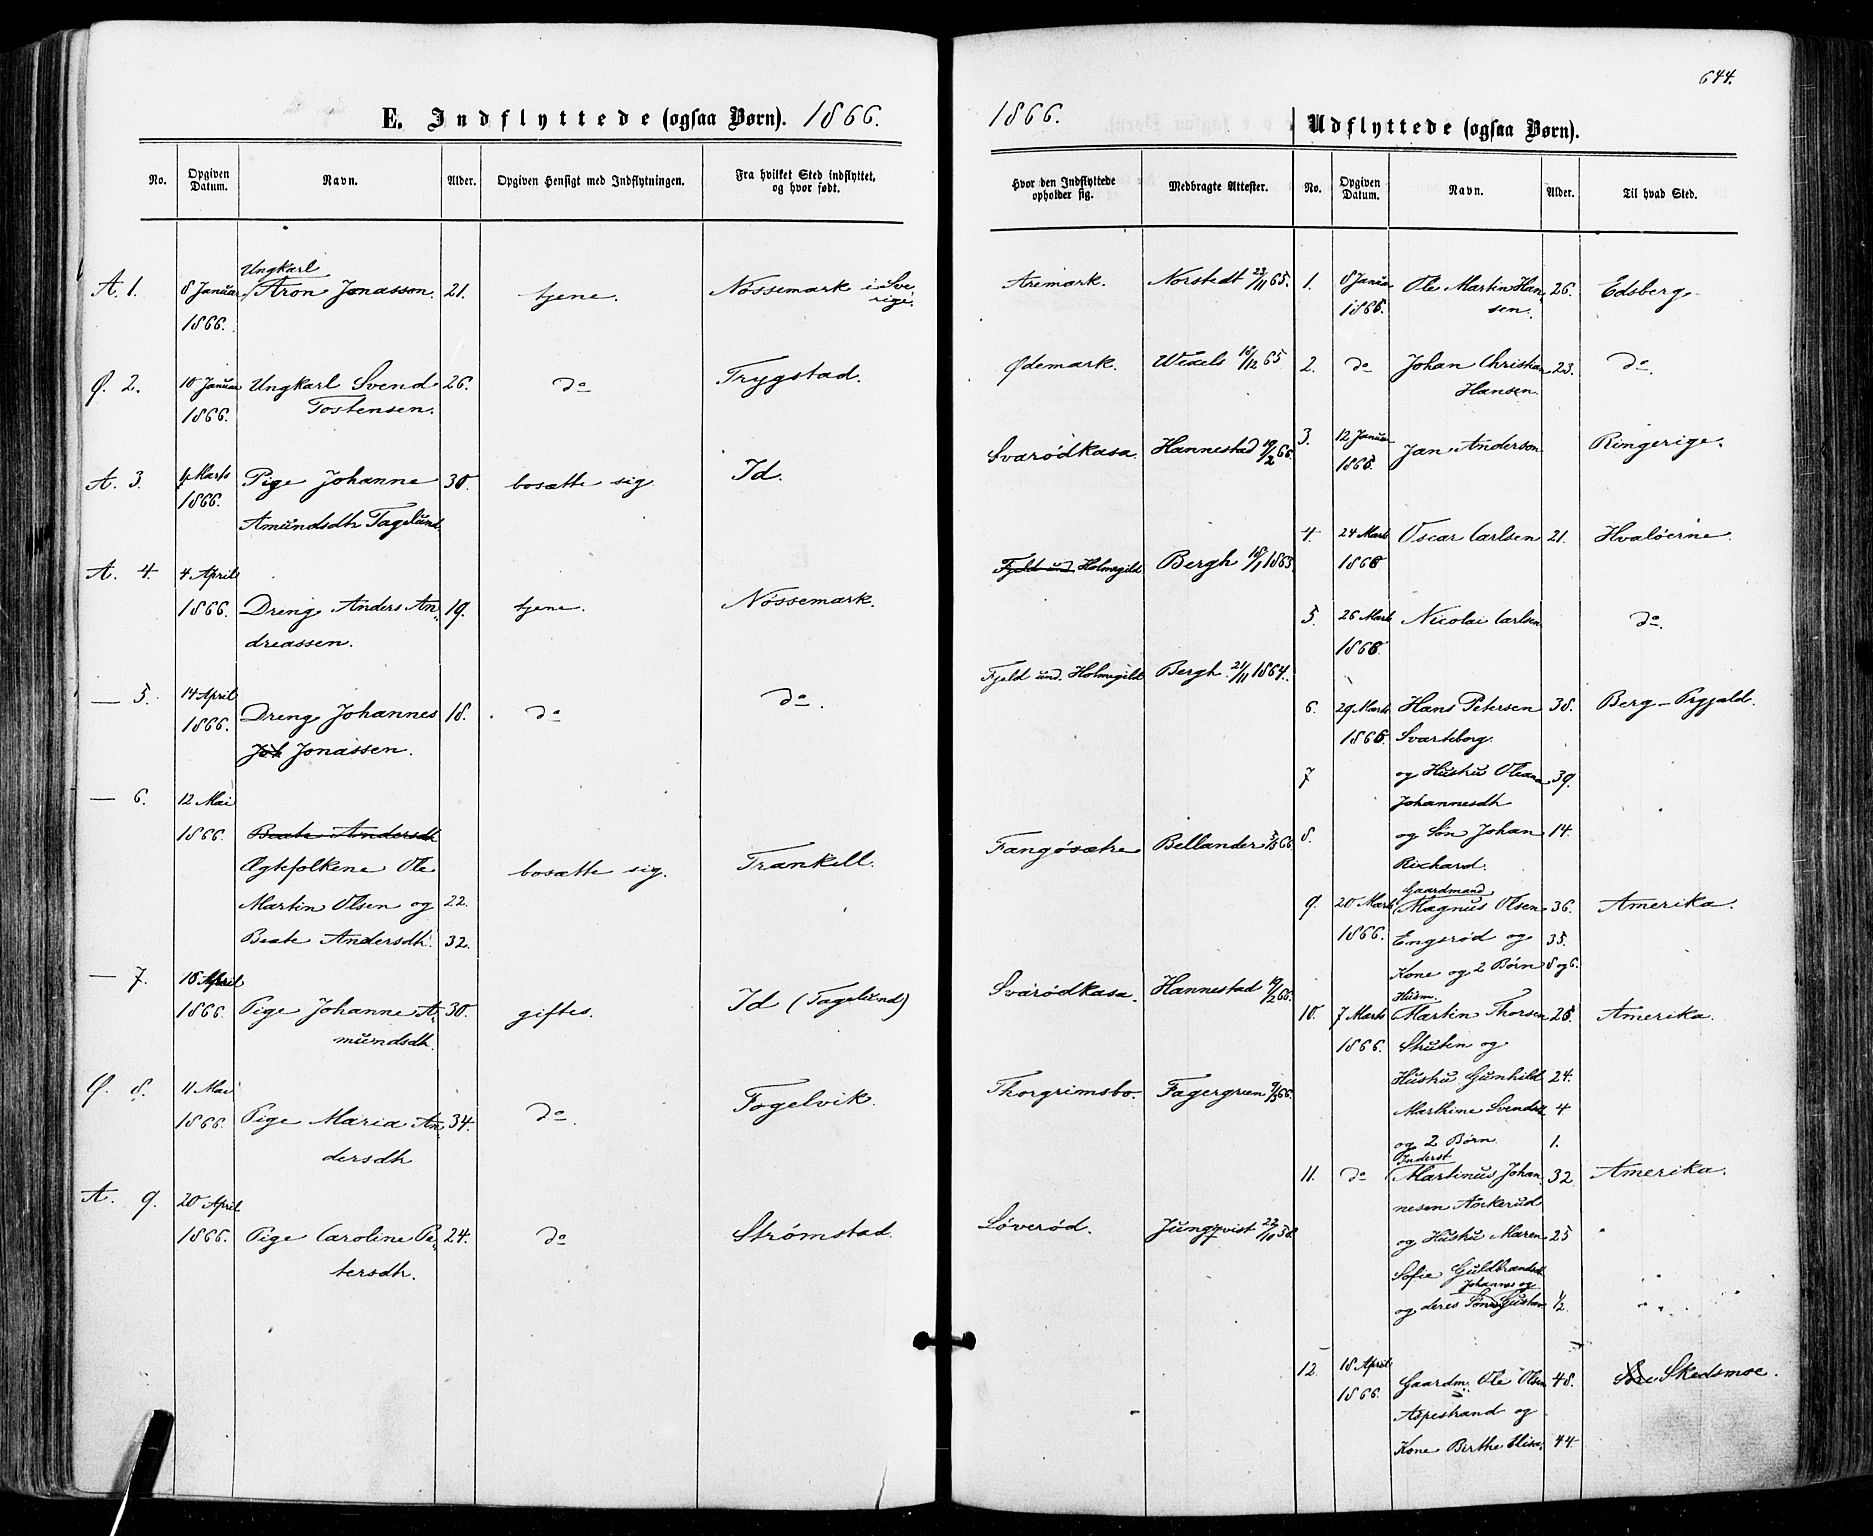 644.
E. Indflyttede (ogsaa Børn). 1866.
No. Opgiven Datum. Navn. Alder. Opgiven Hensigt med Indflytningen. Fra hvilket Sted indflyttet, og hvor født.
Ungkarl
A. 1. 8 Januar Aron Jonasson. 21. tjene. Nössemark i Sve-
1866. rige.
Ø. 2. 10 Januar Ungkarl Svend 26. do Trygstad.
1866. Tostensen.
A. 3. Marts Pige Johanne 30. bosætte sig. Id.
1866. Amundsdtr Tagelund.
A. 4. 4 April
1866. Dreng Anders An- 19. tjene. Nössemark.
dreassen.
— 5. 14 April
1866. Dreng Johannes 18. do do.
Joh Jonassen.
— 6. 12 Mai
1866. Beate Andersdtr
Ægtefolkene Ole bosætte sig. Trankell.
Martin Olsen og 22.
Beate Andersdtr. 32.
— 7. 18 April
1866. Pige Johanne A- 30. giftes. Id (Tagelund)
mundsdtr.
Ø. 8. 11 Mai
1866. Pige Maria An- 34. do. Fogelvik.
dersdtr
A. 9. 20 April
1866. Pige Caroline Pe- 24. do Strømstad.
tersdtr.
1866. Udflyttede (ogsaa Børn).
Hvor den Indflyttede opholder sig. Medbragte Attester. No. Opgiven Datum. Navn. Alder. Til hvad Sted.
Aremark. Norstedt 23/11 65. 1. 8 Januar Ole Martin Han- 26. Edsberg.
1866. sen.
Ødemark. Wedels 18/12 65 2. do Johan Christian 23. do.
Hansen.
Svarødkasa. Hannestad 19/2 66. 3. 12 Januar Jan Anderson Ringerige.
1866.
4. 24 Marts Oscar Carlsen 21. Hvaløerne.
Fjeld und Holmegild Bergh 18/1 1863. 1866
5. 26 Marts Nicolai Carlsen do.
1866.
Fjeld und. Holmegild Bergh 21/11 1864.
6. 29 Marts Hans Petersen 38. Berg—Prgjæld.
1866 Svarteborg.
7 og Hustru Oleana 39.
Johannesdtr
Fangøsætre Bellander 66 8. og Søn Johan 14.
Richard.
Gaardmand
9. 20 Marts Magnus Olsen 36. Amerika.
1866. Engsrød og 35.
Kone og 2 Børn 8 og 6.
Svarødkasa. Hannestad 19/2 66. Husm.
10. 7 Marts Martin Thorsen 26. Amerika.
1866. Struten og
Thorgrimsbo. Fagergreen 66. Hustru Gunhild 24.
Marthine Svendsdtr 4
og 2 Børn. 1.
Inderst
11. do Martinus Johan- 32. Amerika.
nesen Ankerud
Løverød. Jungqvist 22/10 58. og Hustru Maren 25
Sofie Guldbrandsdtr
Johannes og
og deres Sønner Gustav 1/2.
12. 18 April
1866. Gaardm. Ole Olsen 48. Skedsmoe.
Aspestrand og
Kone Berthe Elise, 44.